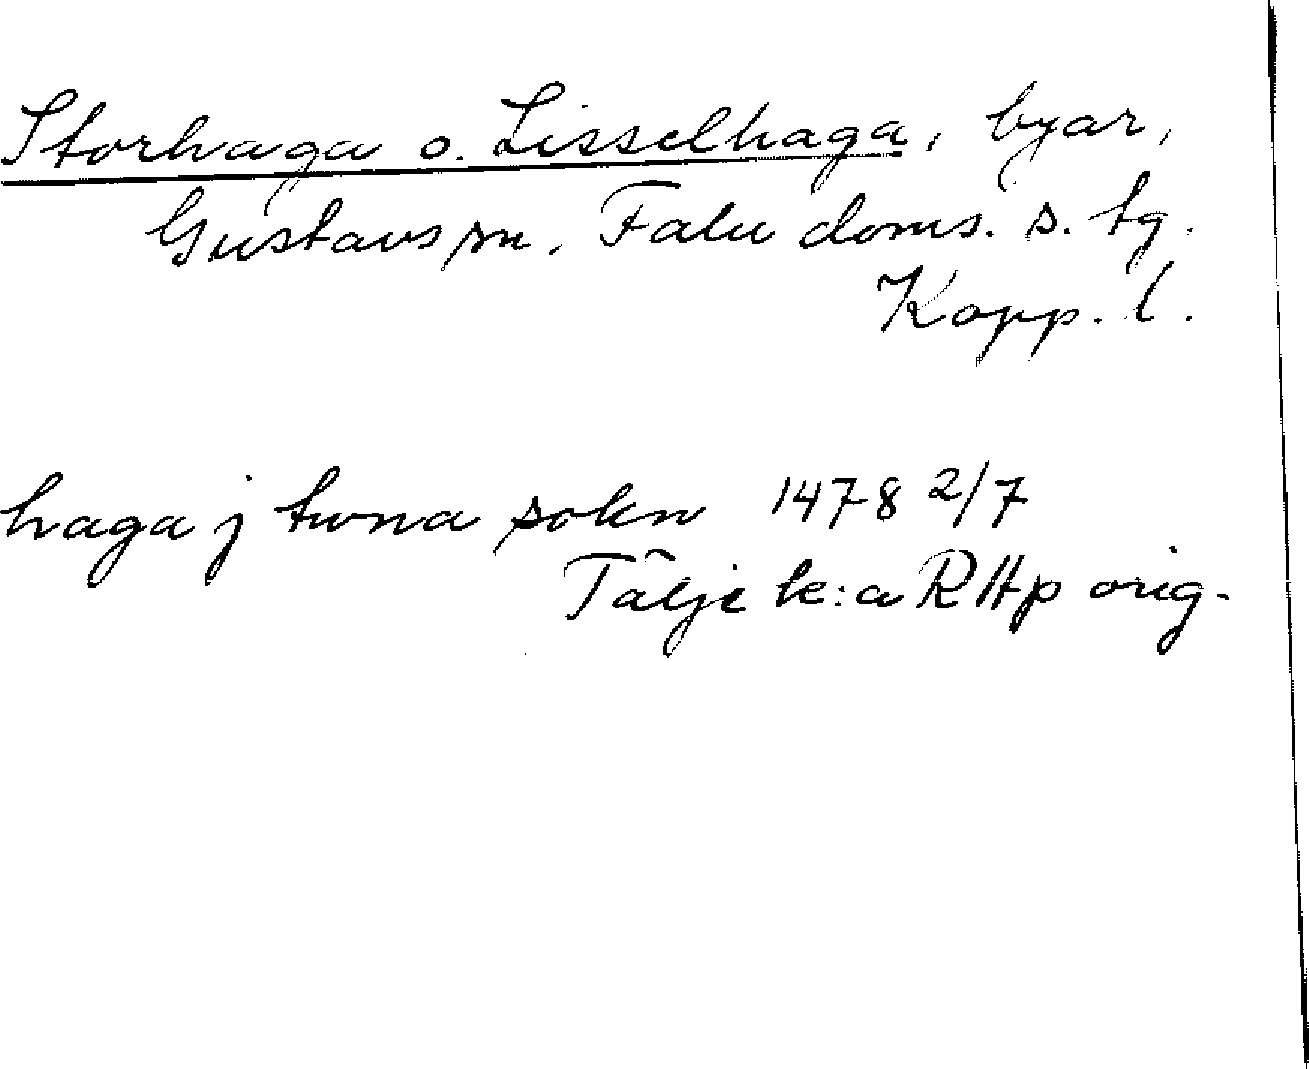 Storhaga o. Lisselhaga, byar,
Gustavs sn. Falu doms. s. tg.
Kopp. l.
haga j tuna sokn 1478 2/7
Tälje k:a RHp orig.